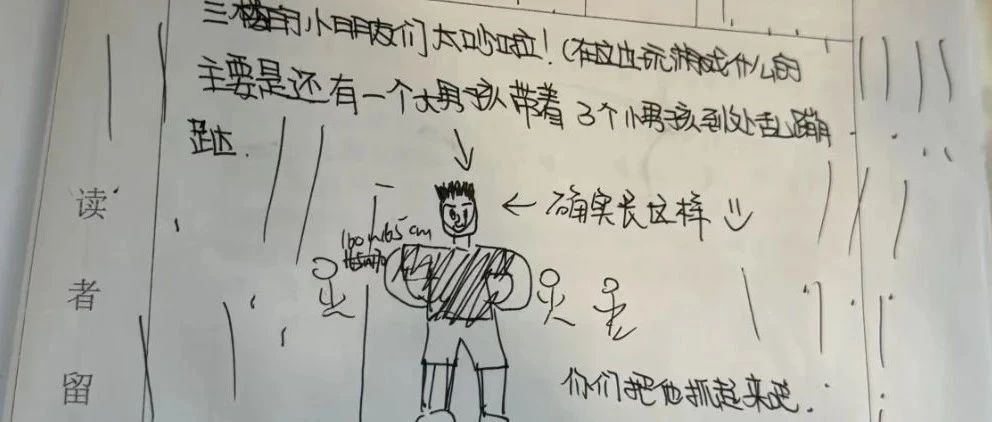 三楼的小朋友们太吵啦！(在这边玩游戏什么的
主要是还有一个大男孩带着3个小男孩到处乱蹦
跶.
确实长这样
160~165cm
你们把他抓起来吧.
读
者
留